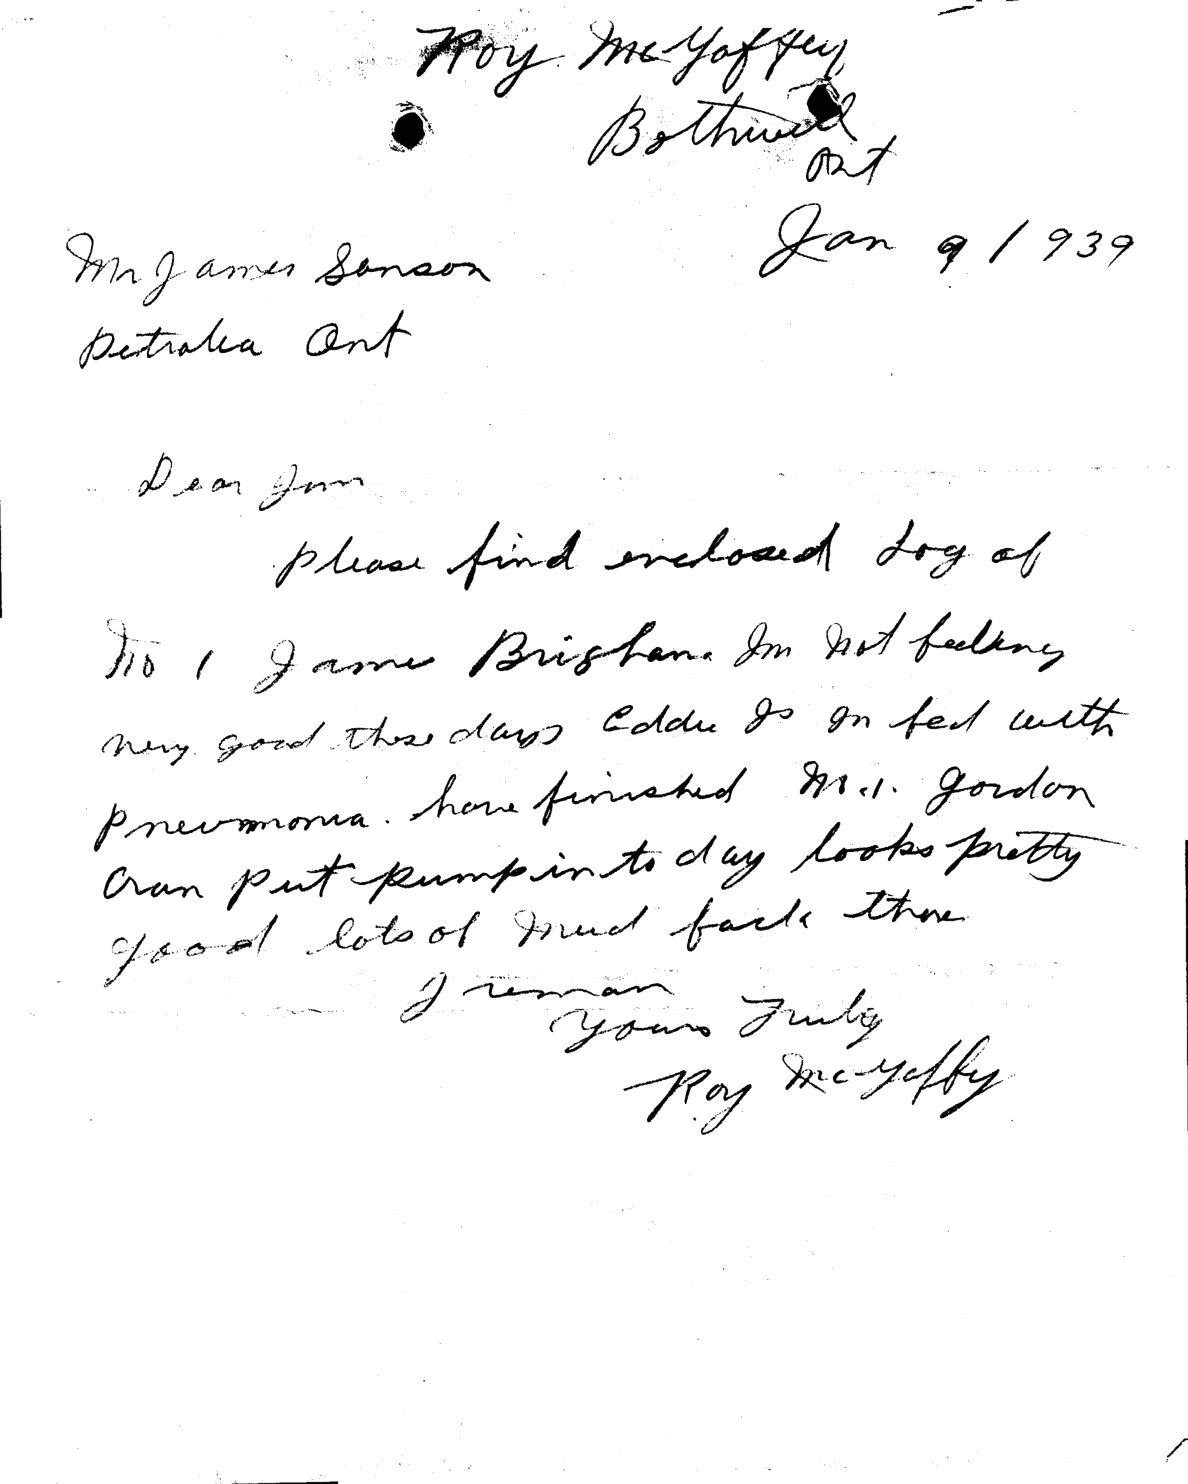 Roy McGaffey
Bothwell
Ont
Jan 9 / 1939
Mr James Sanson
Petrolia Ont
Dear Jim
Please find enclosed Log of
No 1 James Brigham. Im Not feeling
very good these days Eddie Is In bed with
Pneumonia. have finished No. 1. Gordon
Cran Put Pump in to day looks pretty
good lots of Mud back there
I reman
Yours Truly
Roy McGaffy